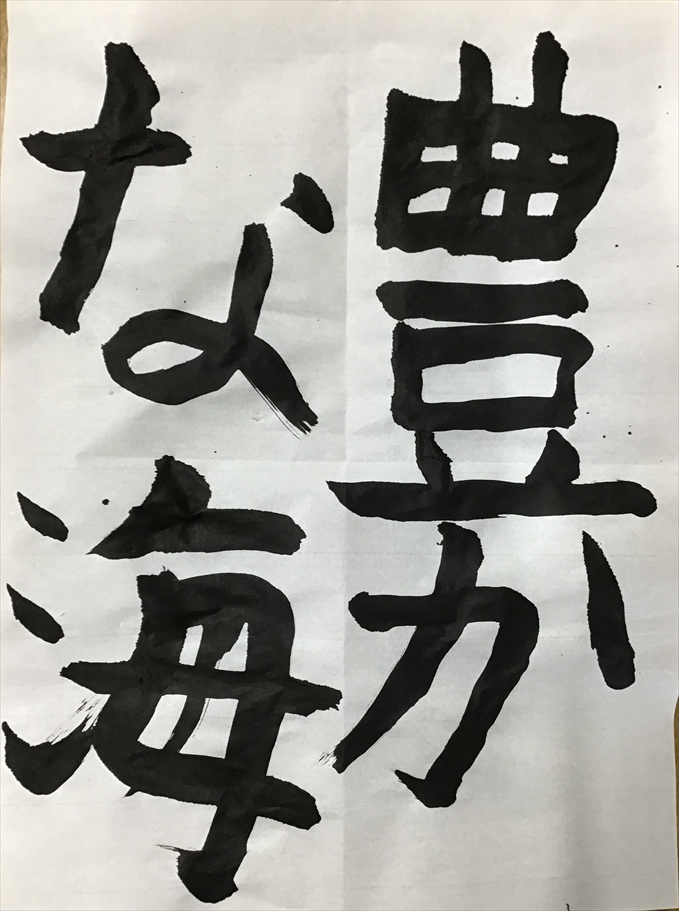 豊か
な海